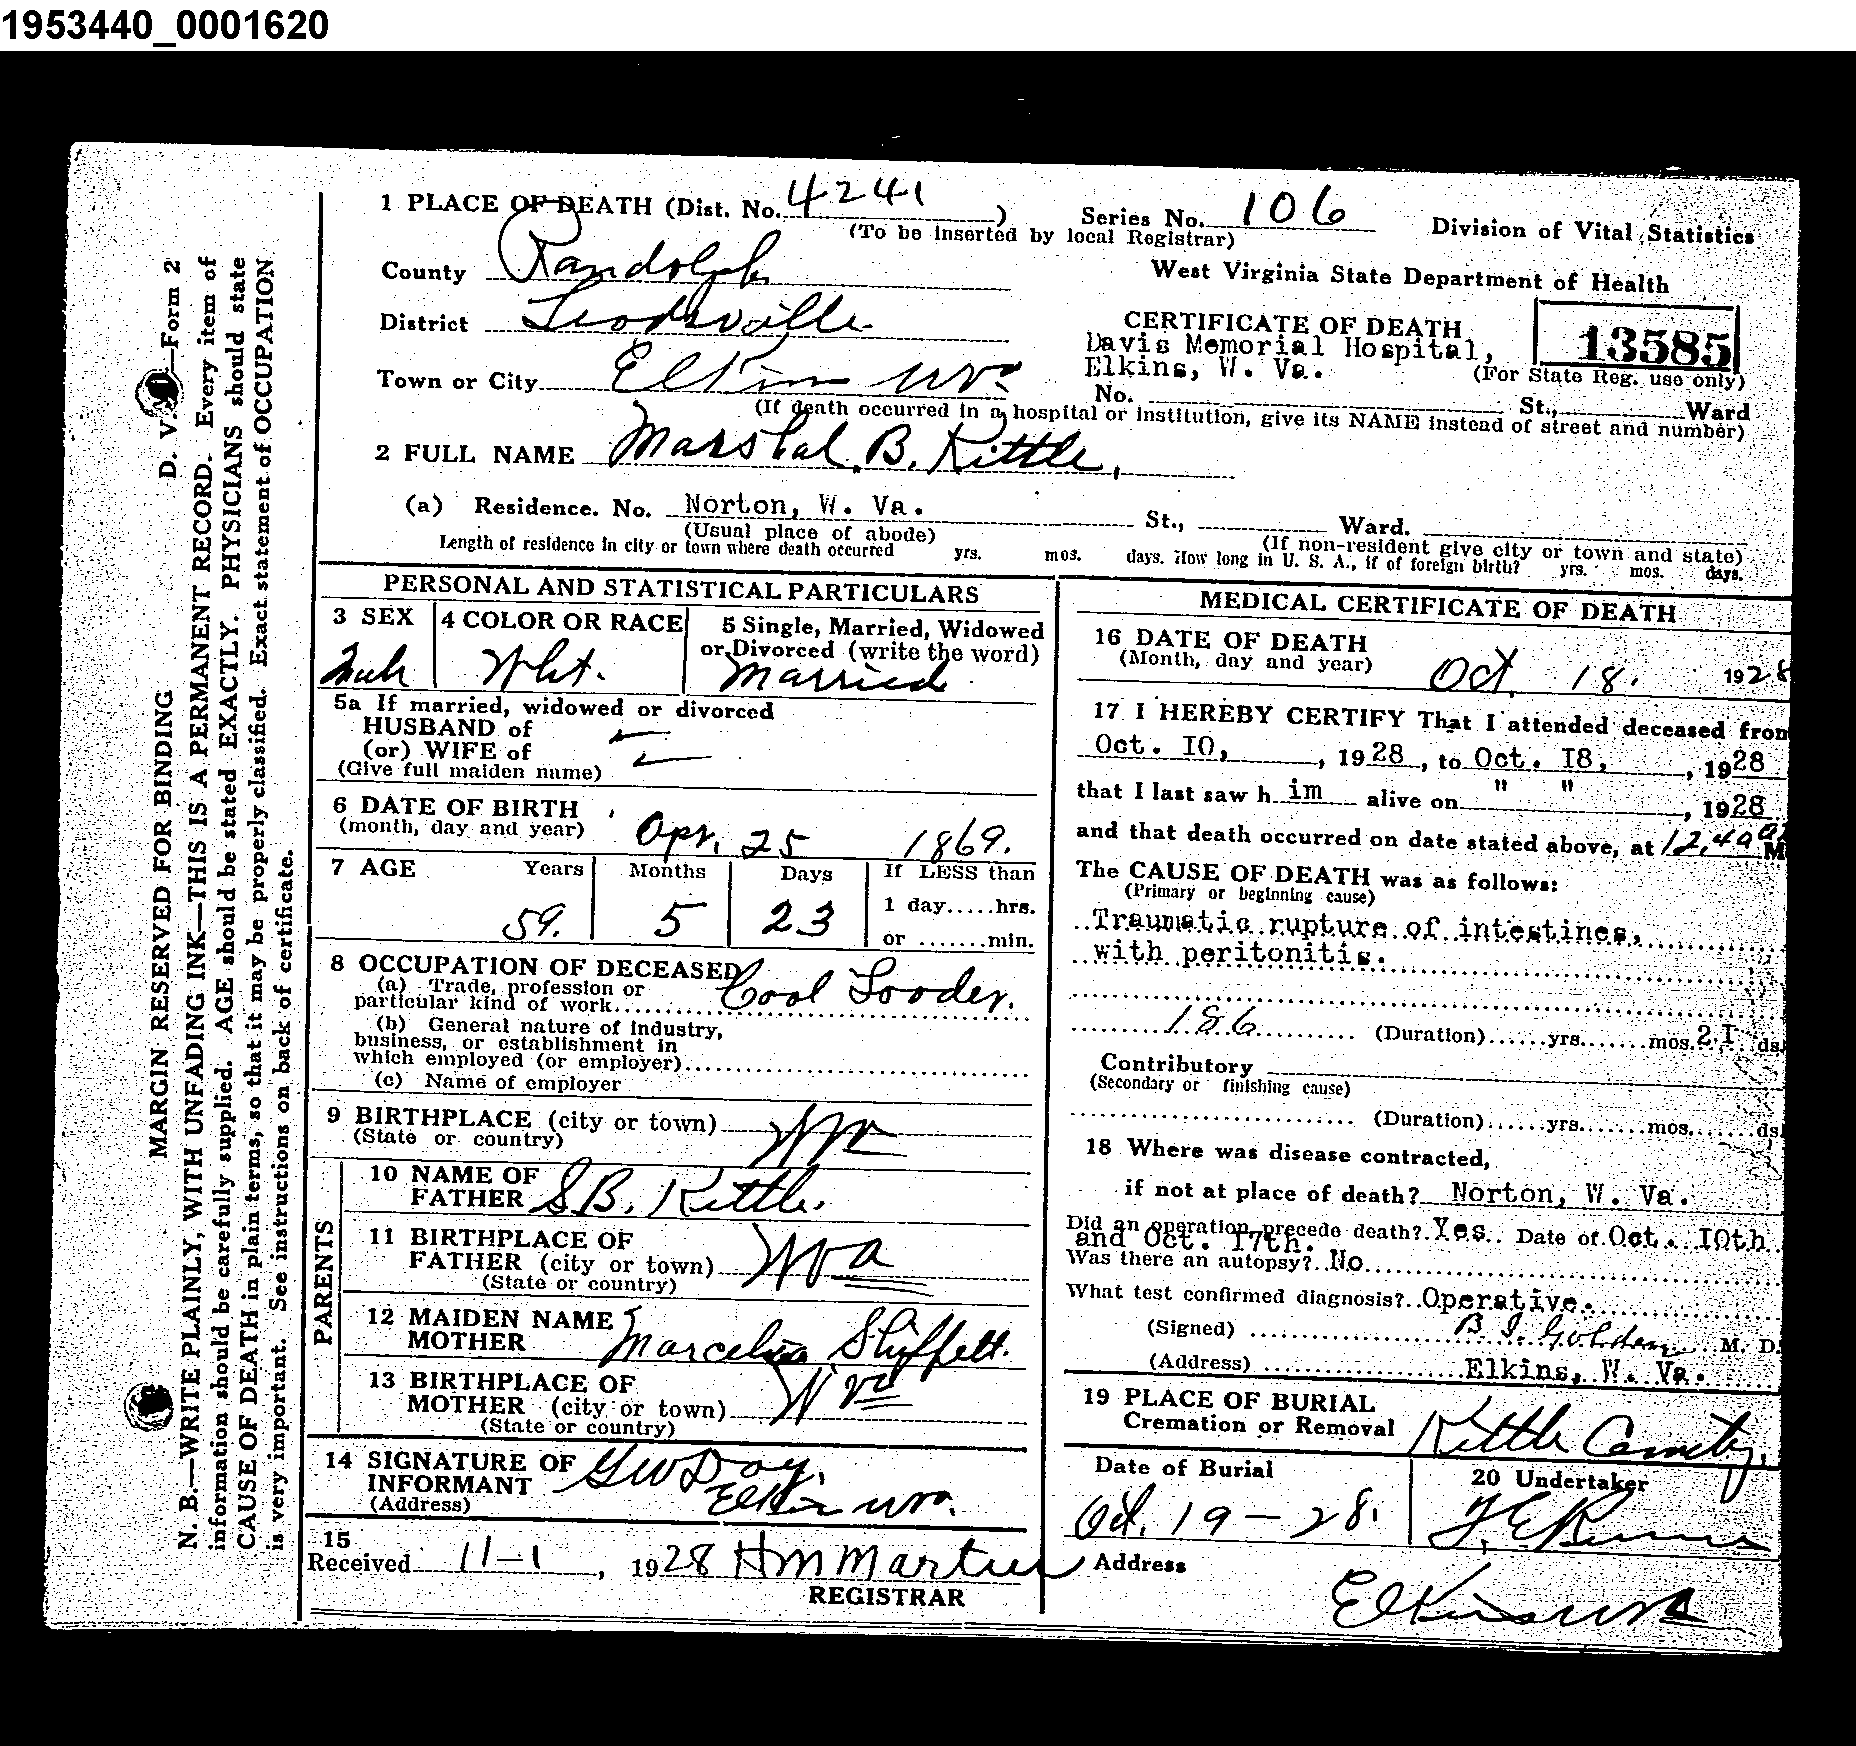 1953440_0001620
1 PLACE OF DEATH (Dist. No. 4241 )
Series No. 106
Division of Vital Statistics
(To be inserted by local Registrar)
County Randolph
West Virginia State Department of Health
District Leadsville
CERTIFICATE OF DEATH
13585
Davis Memorial Hospital,
Elkins, W. Va.
(For State Reg. use only)
Town or City Elkins W Va
No. St., Ward
(If death occurred in a hospital or institution, give its NAME instead of street and number)
2 FULL NAME Marshal B. Kittle,
(a) Residence. No. Norton, W. Va. St., Ward.
(Usual place of abode)
(If non-resident give city or town and state)
Length of residence in city or town where death occurred yrs. mos. days. How long in U. S. A., if of foreign birth? yrs. mos. days.
PERSONAL AND STATISTICAL PARTICULARS
3 SEX
4 COLOR OR RACE
5 Single, Married, Widowed
or Divorced (write the word)
Male
Wht.
Married
5a If married, widowed or divorced
HUSBAND of
(or) WIFE of
(Give full maiden name)
6 DATE OF BIRTH
(month, day and year) Apr. 25 1869.
7 AGE Years Months Days If LESS than
59. 5 23 1 day.....hrs.
or .......min.
8 OCCUPATION OF DECEASED
(a) Trade, profession or
particular kind of work Cool Looder.
(b) General nature of Industry,
business, or establishment in
which employed (or employer)
(c) Name of employer
9 BIRTHPLACE (city or town) W Va
(State or country)
PARENTS
10 NAME OF
FATHER S.B. Kittle.
11 BIRTHPLACE OF
FATHER (city or town) W Va
(State or country)
12 MAIDEN NAME
MOTHER Marcelina Shiffett.
13 BIRTHPLACE OF
MOTHER (city or town) W Va
(State or country)
14 SIGNATURE OF
INFORMANT G W Day.
(Address) Elkins W Va.
15
Received 11-1, 1928 H M Martin
REGISTRAR
MEDICAL CERTIFICATE OF DEATH
16 DATE OF DEATH
(Month, day and year) Oct. 18. 1928
17 I HEREBY CERTIFY That I attended deceased from
Oct. IO, , 1928, to Oct. I8, , 1928
that I last saw h im alive on " " , 1928
and that death occurred on date stated above, at 12,40 a M
The CAUSE OF DEATH was as follows:
(Primary or beginning cause)
Traumatic rupture of intestines,
with peritonitis.
186 (Duration)......yrs.......mos.2I.ds.
Contributory
(Secondary or finishing cause)
(Duration)......yrs.......mos.......ds.
18 Where was disease contracted,
if not at place of death? Norton, W. Va.
Did an operation precede death? Yes. Date of Oct. IOth
and Oct. I7th.
Was there an autopsy? No
What test confirmed diagnosis? Operative.
(Signed) B. I. Golden M. D.
(Address) Elkins, W. Va.
19 PLACE OF BURIAL
Cremation or Removal Kittle Cemety.
Date of Burial
20 Undertaker
Oct. 19-28.
Address
Elkins W Va
MARGIN RESERVED FOR BINDING D. V. —Form 2
N. B.—WRITE PLAINLY, WITH UNFADING INK—THIS IS A PERMANENT RECORD. Every item of
information should be carefully supplied. AGE should be stated EXACTLY. PHYSICIANS should state
CAUSE OF DEATH in plain terms, so that it may be properly classified. Exact statement of OCCUPATION
is very important. See instructions on back of certificate.